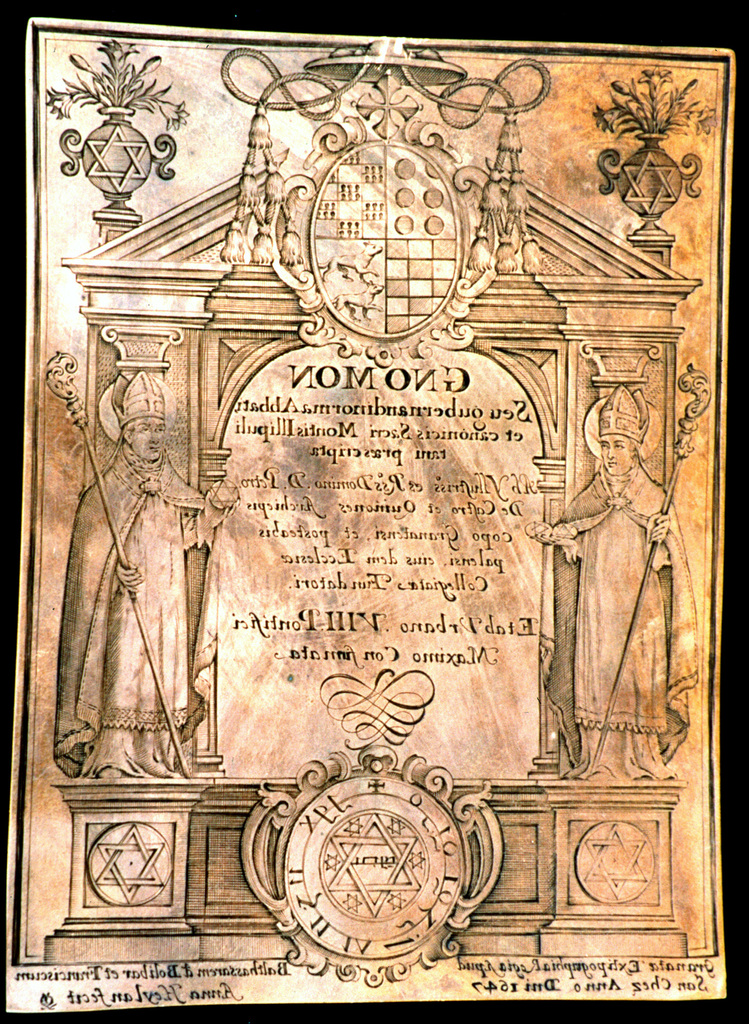 GNOMON
Seu gubernandi norma Abbati,
et canonicis Sacri Montis Illipuli
tani præscripta
Ab Yllustriss.º et R.s.º Domino D. Petro,
De Castro et Quiniones Archiepis
copo Granatensi, et postea his
palensi, eius dem Ecclesiæ
Collegiatæ Fundatori.
Et ab Vrbano VIII. Pontifici
Maximo Confirmata
Granatæ Ex tipographia Regia Apud Balthassarem d Bolibar et Franciscum
San Chez Anno Dni 1647 Anna Heylan fecit